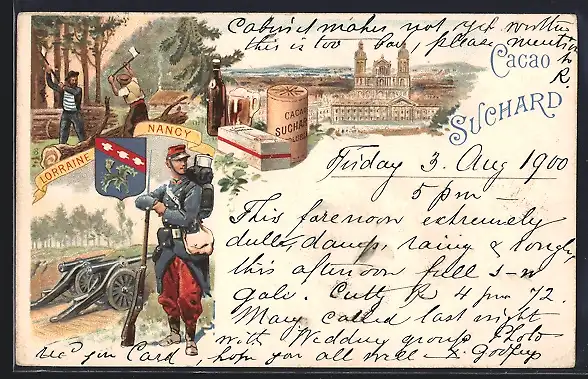 Cabinet makes not yet written
this is too bad, please mention
to
R.
Cacao
SUCHARD
CACAO
SUCHARD
NANCY
LORRAINE
Friday 3. Aug 1900
5 pm —
This forenoon extremely
dull, damp, rainy & rough,
this afternoon full s-w
gale. Cutty R 4 pm 72.
May called last night
with Wedding group Photo
rec'd your Card, hope you all well — Godfrey